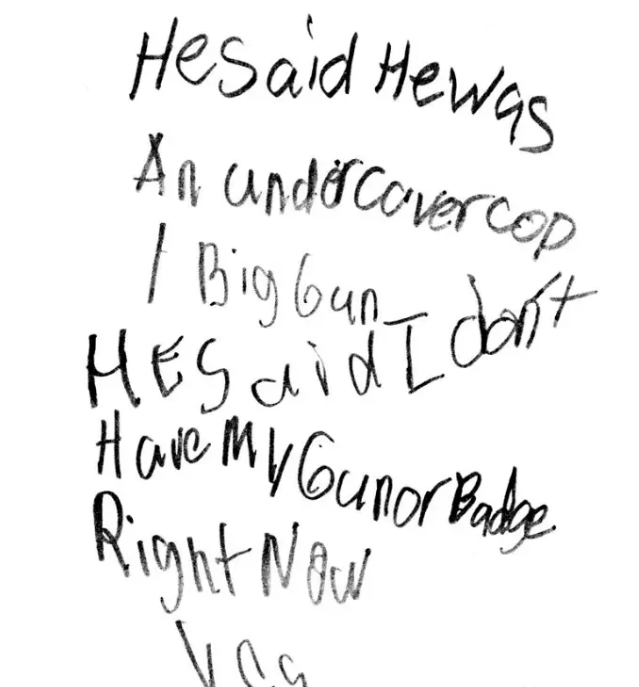 He Said He was
An undercover cop
1 Big Gun
HE Said I don't
Have My Gun or Badge
Right Now